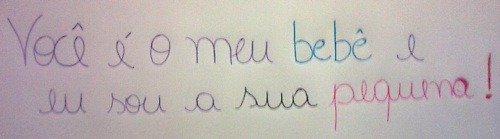 Você é o meu bebê e
eu sou a sua pequena!